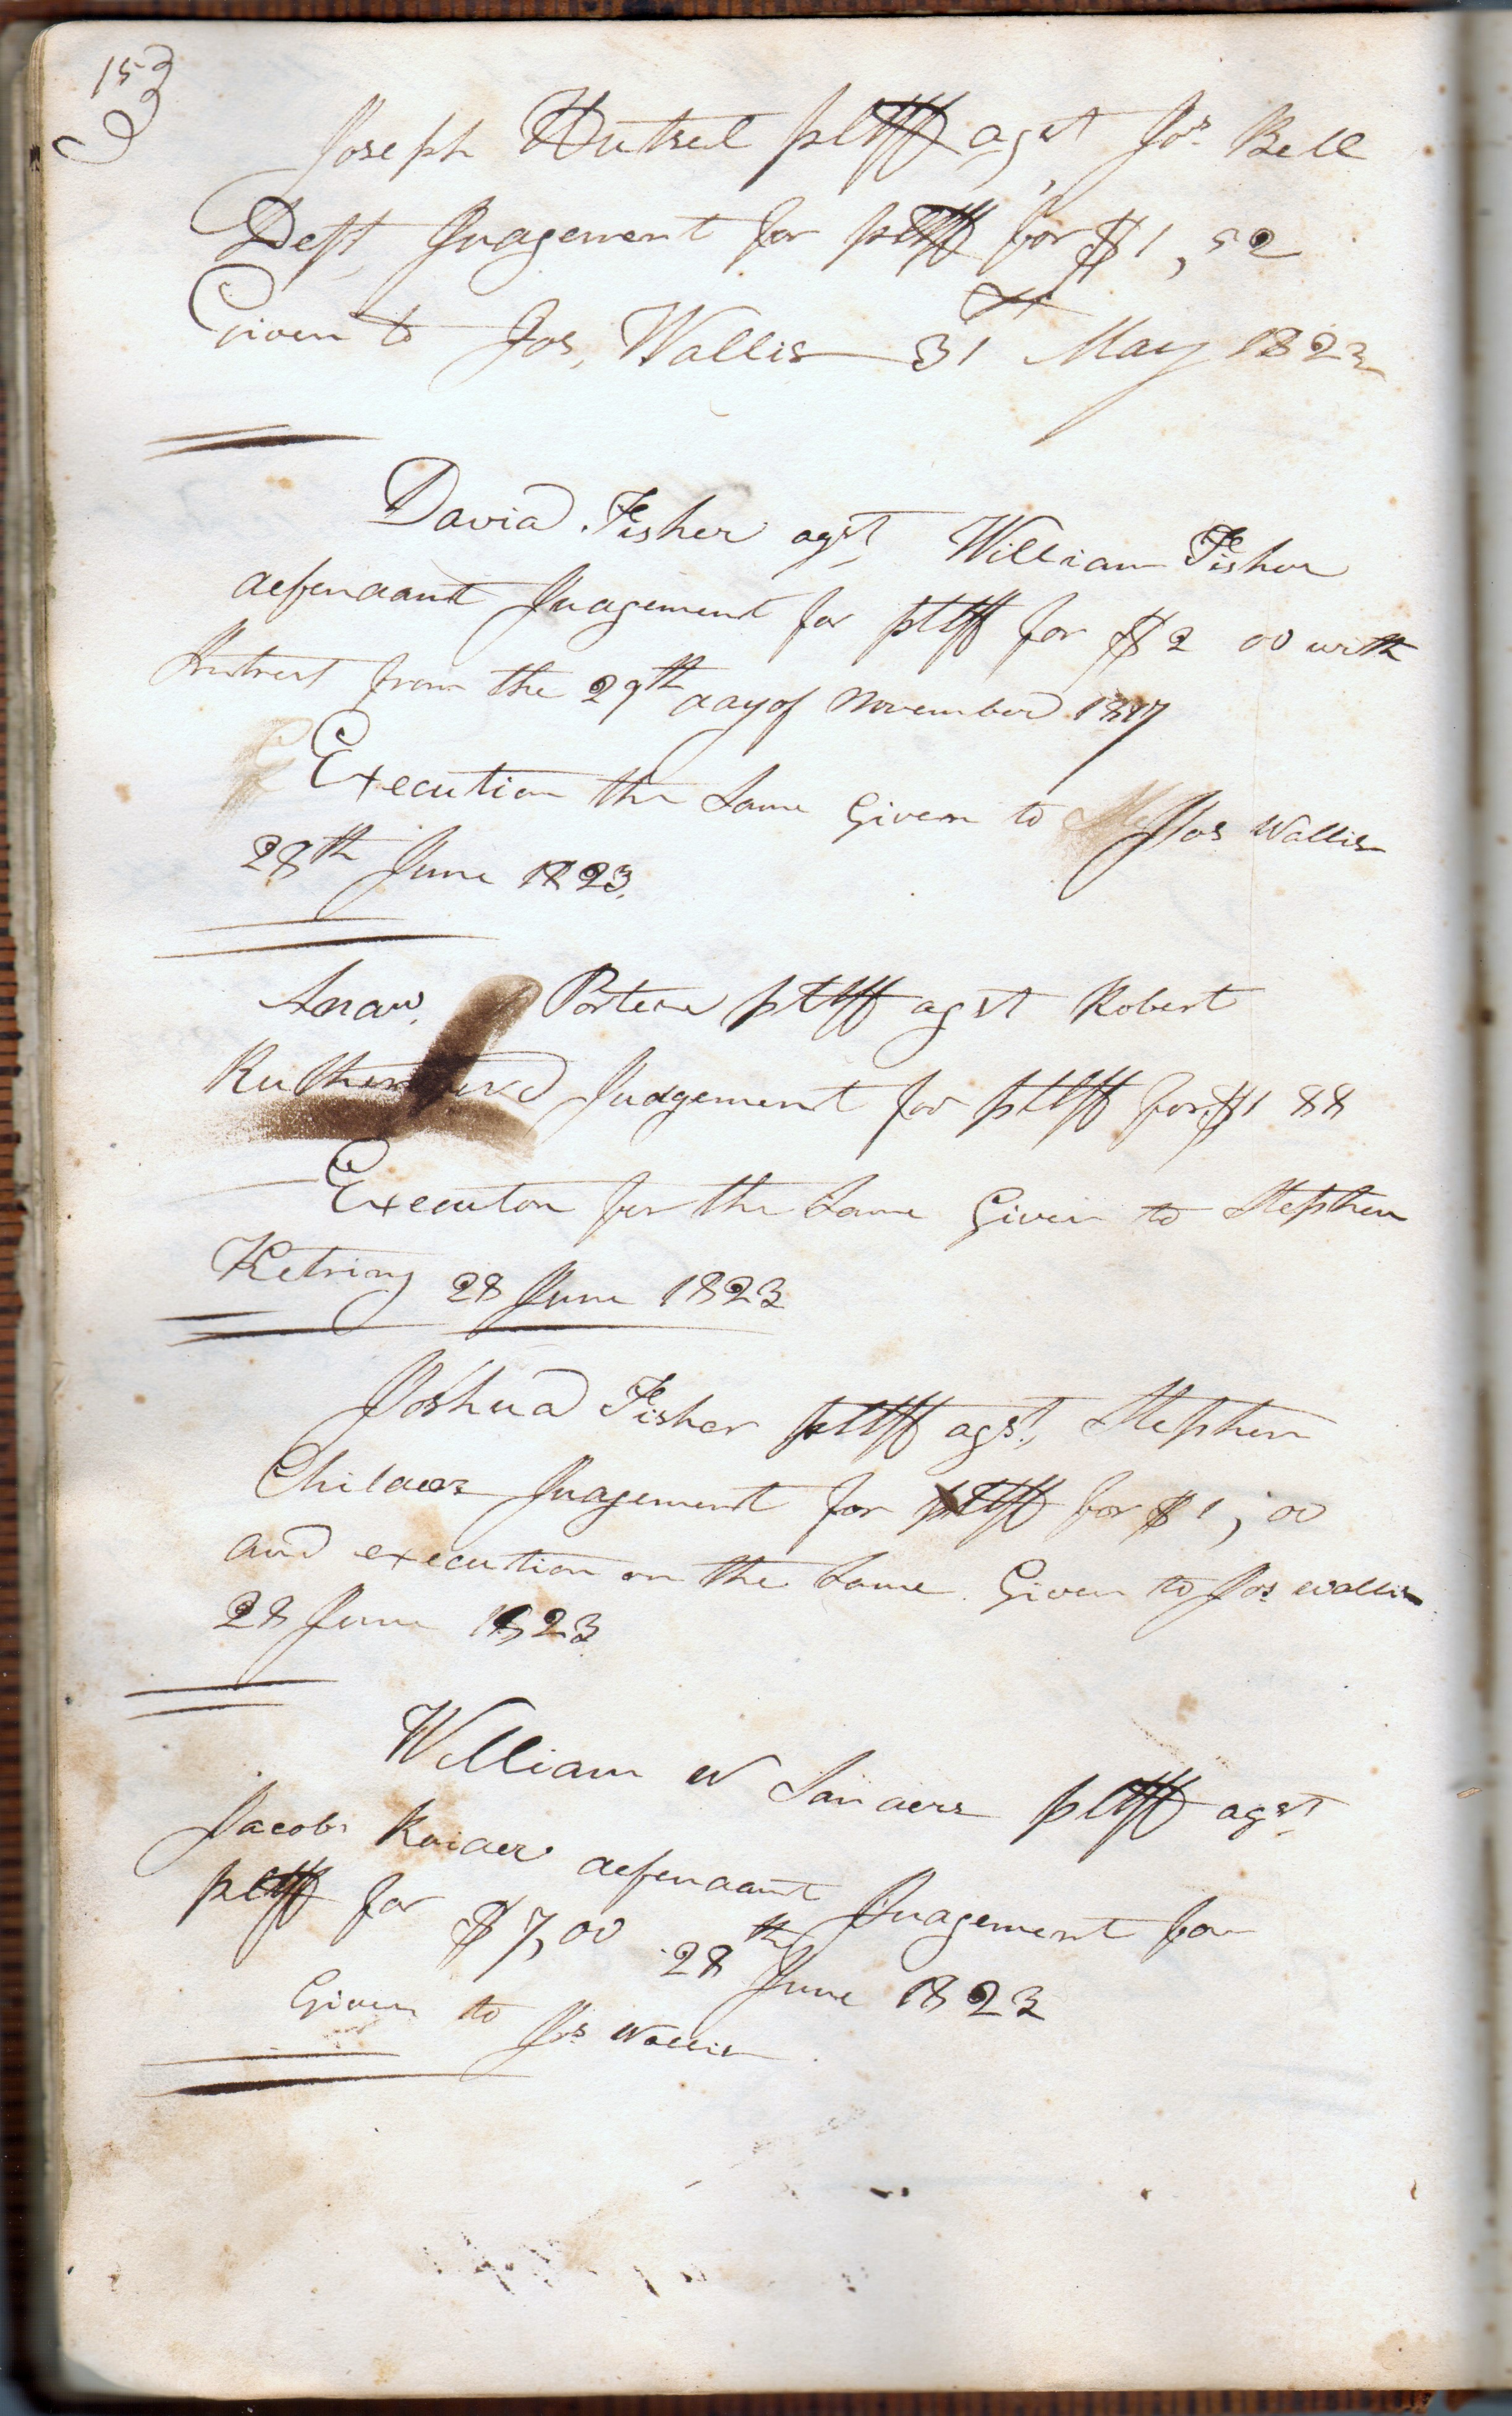 153
Joseph Hutsel pltff agst Jos Bell
Deft, Judgement for pltff for $1,52
Given to Jos, Wallis 31st May 1823
David Fisher agst, William Fisher
defendant Judgement for pltff for $2 00 with
Intrest from the 29th day of November 1817
Execution the Same Given to Jos Wallis
28th June 1823.
Andw. Porter pltff agst Robert
Rutherford Judgement for pltff for $1 88
Executon for the Same Given to Stephen
Ketring 28 June 1823
Joshua Fisher pltff agst, Stephen
Childers Judgement for pltff for $1,00
and execution on the Same Given to Jos Wallis
28 June 1823
William W Sanders pltff agst
Jacob defendant Judgement for
pltff for $7,00 28th June 1823
Given to Jos Wallis